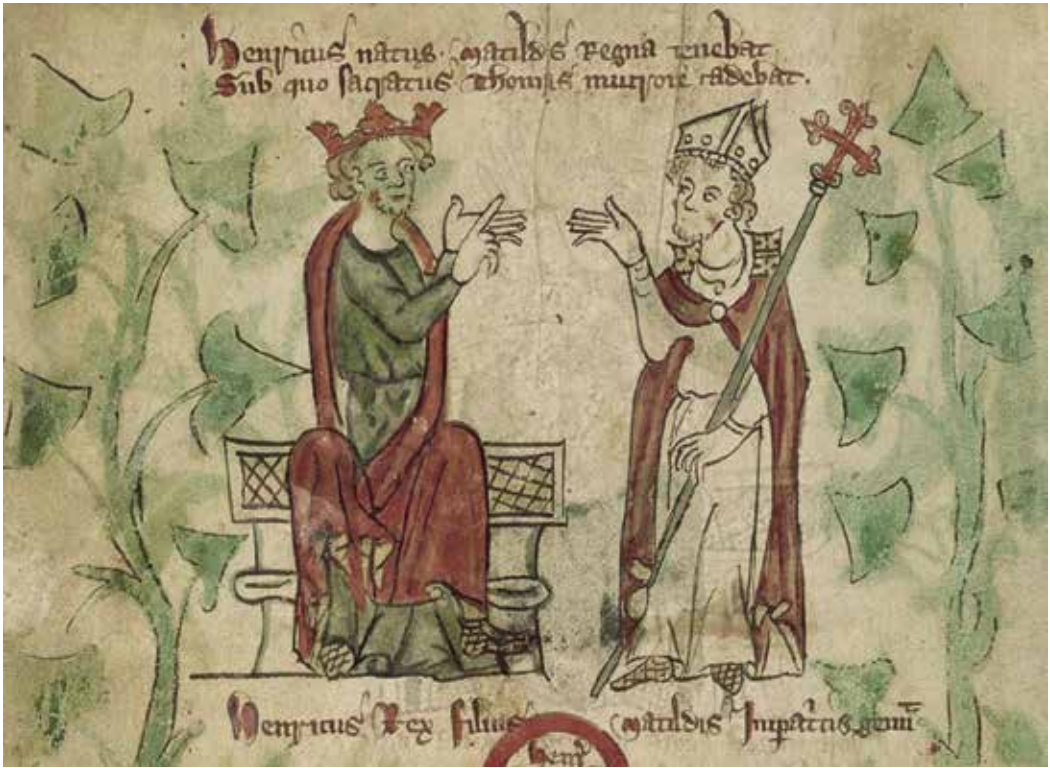 Henricus natus Matildis Regna tenebat
Sub quo sacratus Thomas mucrone cadebat.
Henricus Rex filius Matildis Inperatricis
henr